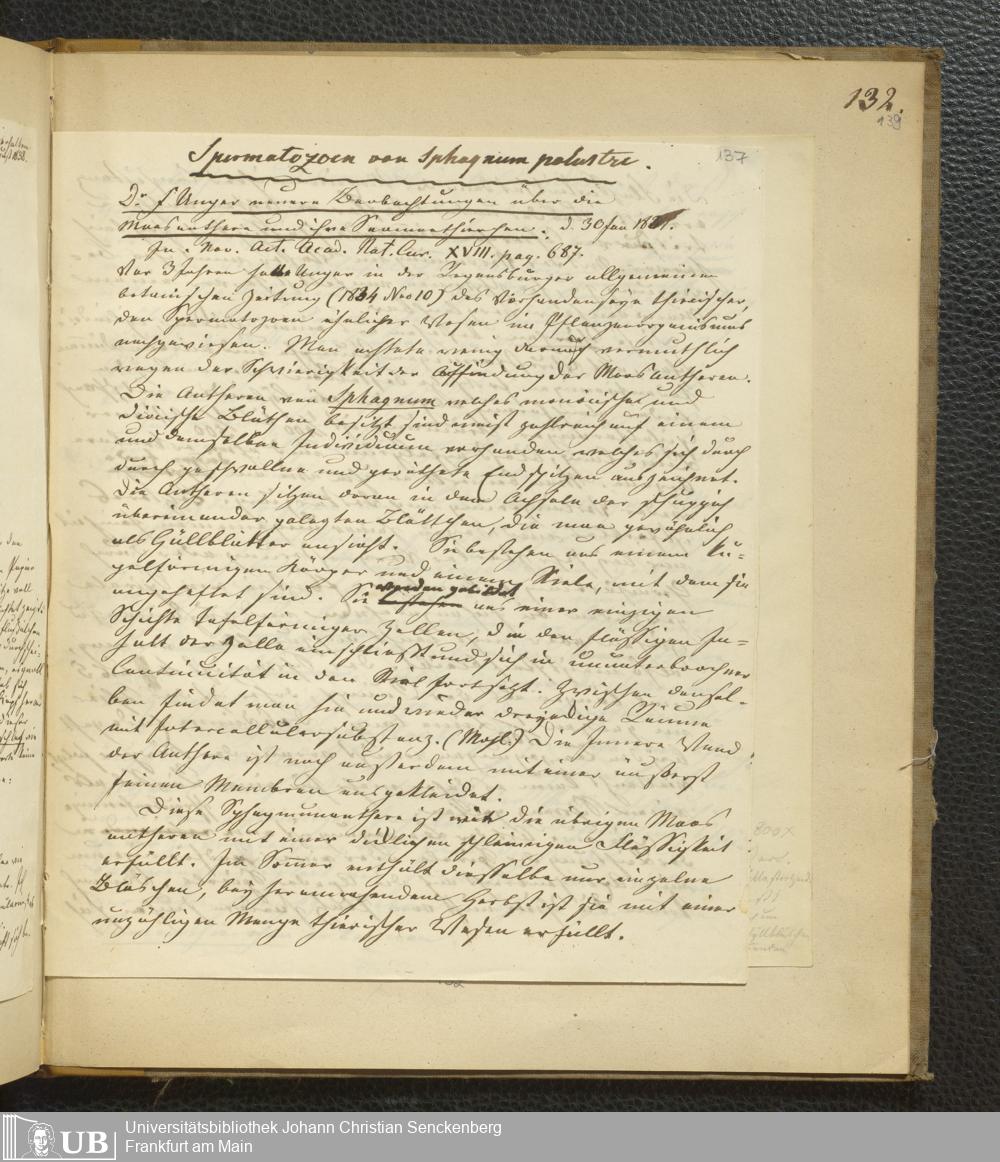 132.
139
137
Spermatozoen von Sphagnum palustre.
Dr F Unger neuere Beobachtungen über die
Moosanthere und ihre Saamenthierchen. d. 30 Jan
In: Nov. Act. Acad. Nat. Cur. XVIII. pag. 687.
Vor 3 Jahren hatte Unger in der Regensburger allgemeinen
botanischen Zeitung (1834 Nro 10) das Vorhandenseyn thierischer,
den Spermatozoen ähnlicher Wesen im Pflanzenorganismus
nachgewiesen. Man achtete wenig darauf vermuthlich
wegen der Schwierigkeit der Auffindung der Moosantheren.
Die Antheren von Sphagnum welches monöcische und
diöcische Blüthen besitzt sind meist zahlreich auf einem
und demselben Individuum vorhanden welches sich durch
durch geschwollne und geröthete Endspitzen auszeichnet.
Die Antheren sitzen daran in den Achseln der schuppich
übereinander gelegten Blättchen, die man gewöhnlich
als Hüllblätter ansieht. Sie bestehen aus einem ku-
gelförmigen Körper und einem Stiele, mit dem sie
angeheftet sind. Sie werden gebildet aus einer einzigen
Schichte tafelförmiger Zellen, die den flüssigen In-
halt der Zelle einschliesst und sich in ununterbrochner
Continuität in den Stiel fortsetzt. Zwischen densel-
ben findet man hie und wieder dreyeckige Räume
mit Intercellularsubstanz. (Mohl.) Die Innere Wand
der Anthere ist noch ausserdem mit einer äußerst
feinen Membran ausgekleidet.
Diese Sphagnumanthere ist wie die übrigen Moos
antheren mit einer schleimigen Flüssigkeit
erfüllt. Im Sommer enthält dieselbe nur einzelne
Bläschen, bey herannahendem Herbst ist sie mit einer
unzähligen Menge thierischer Wesen erfüllt.
UB
Universitätsbibliothek Johann Christian Senckenberg
Frankfurt am Main